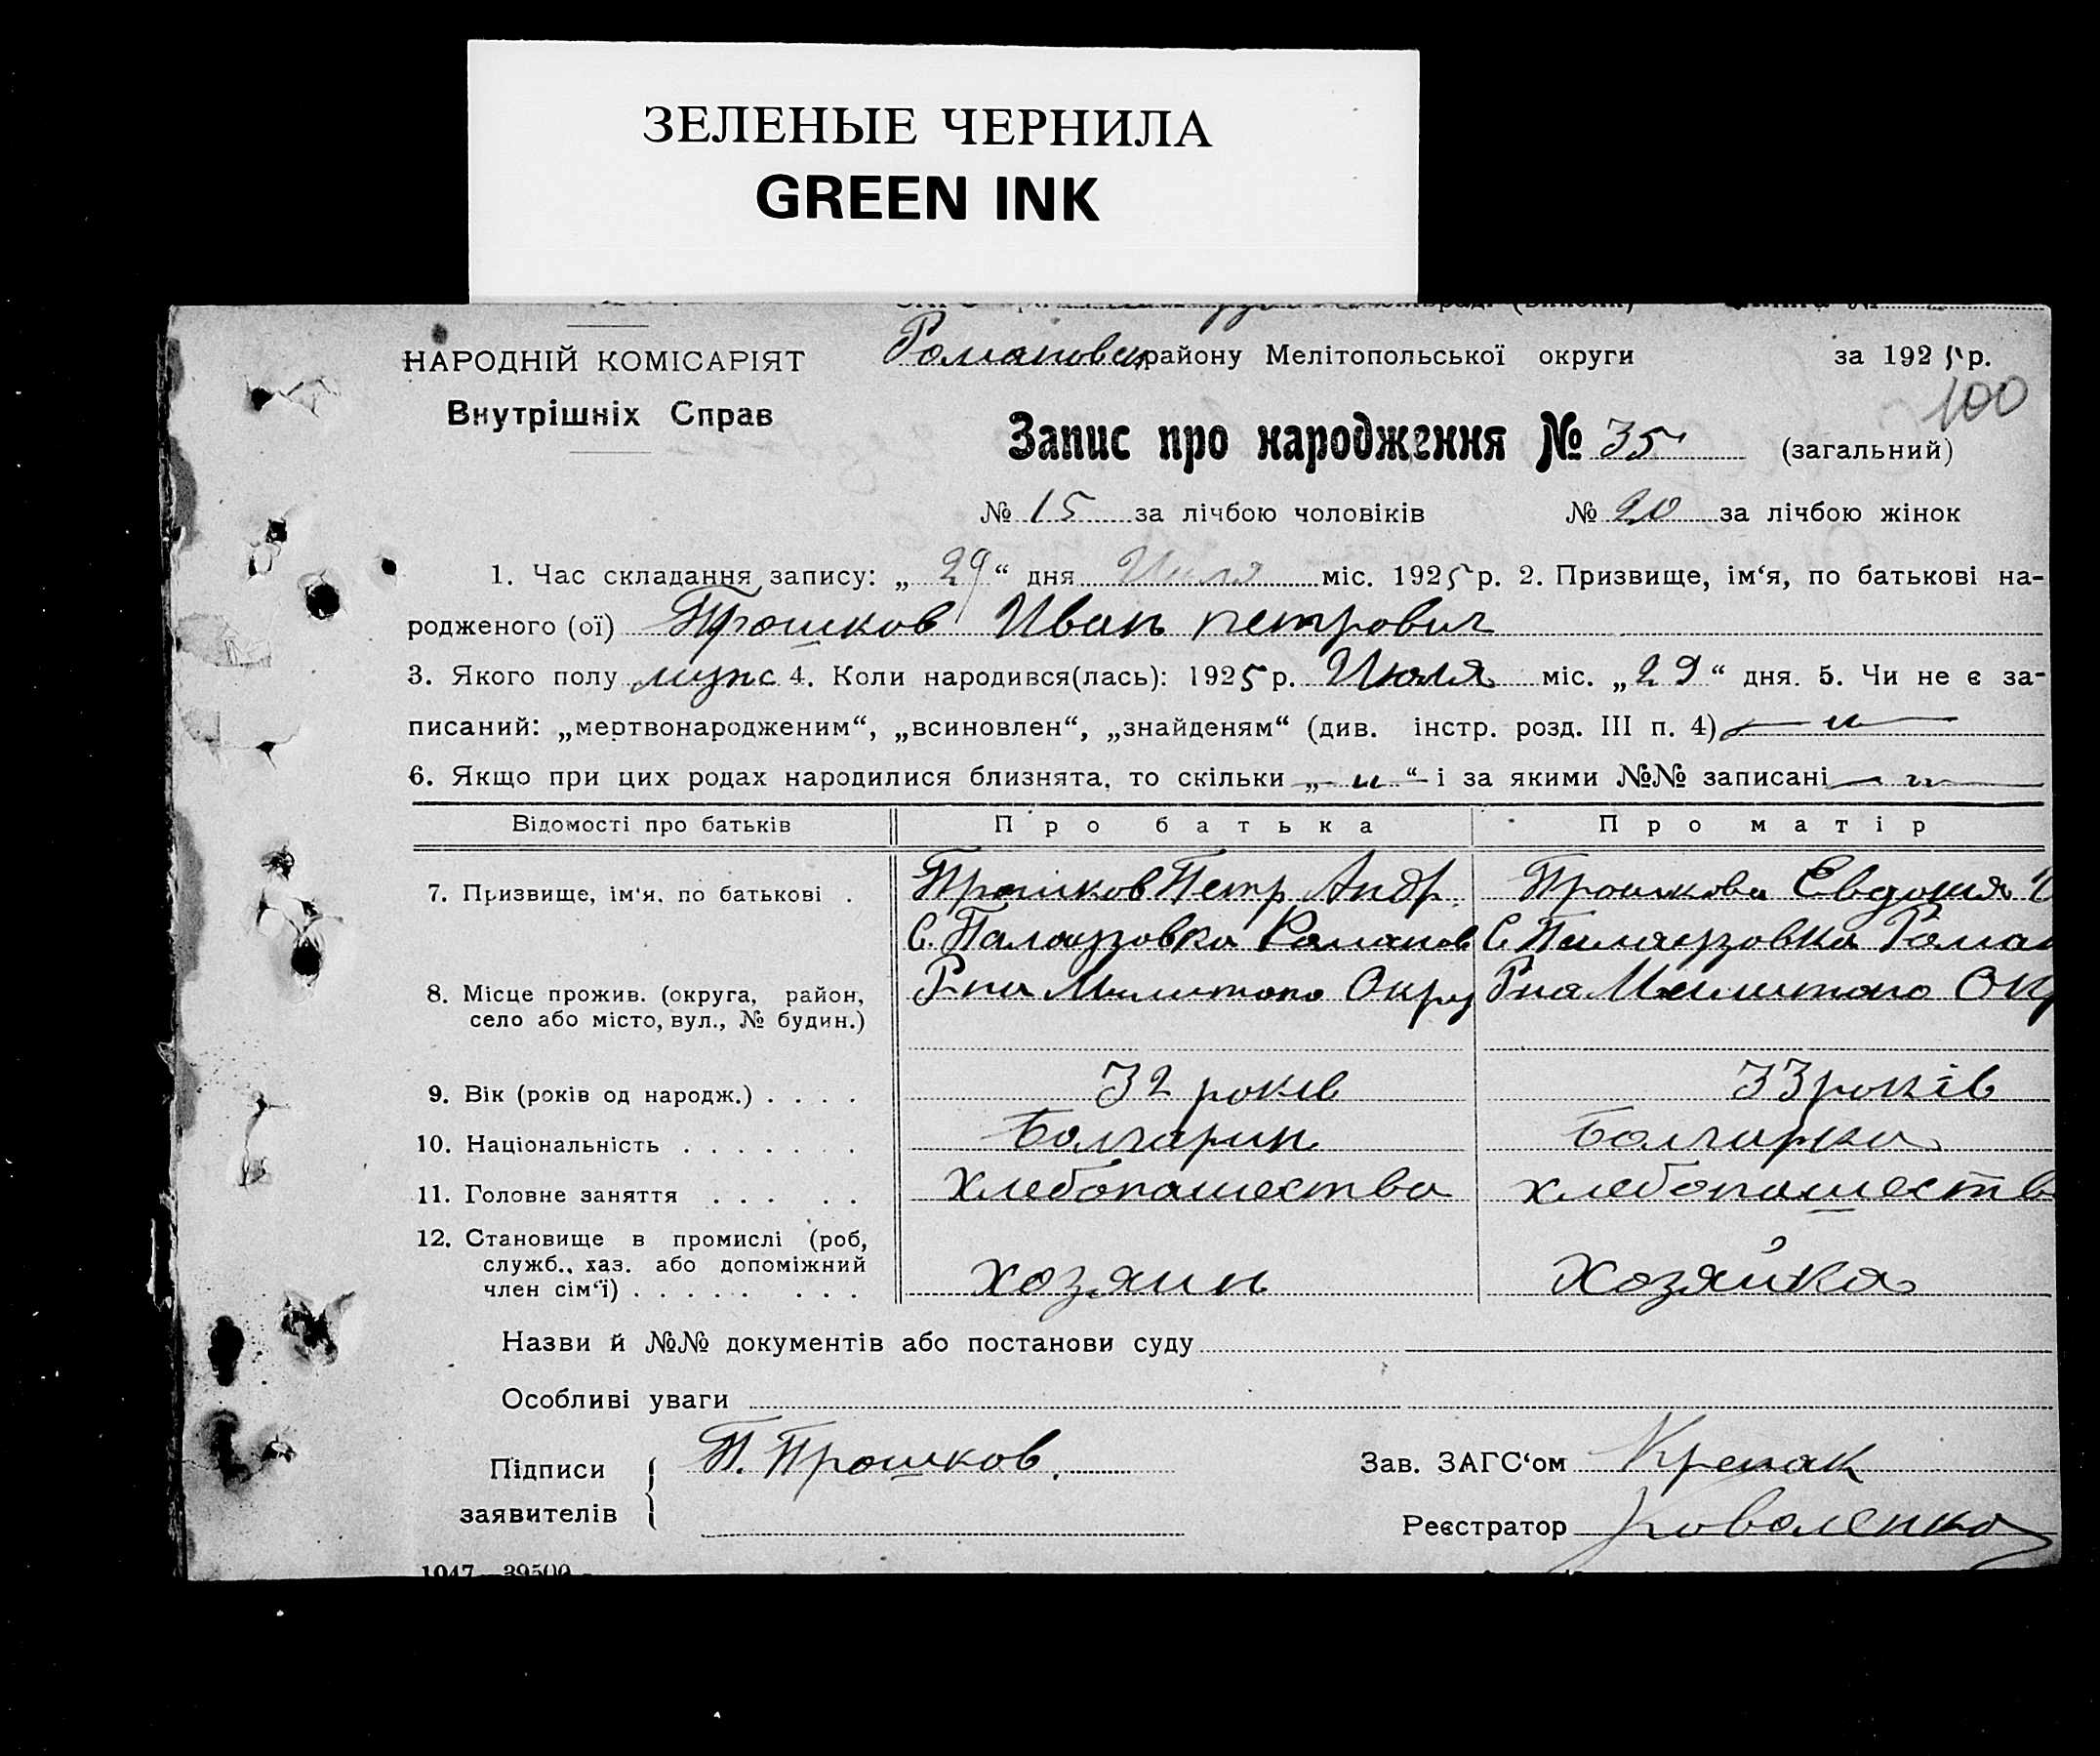 ЗЕЛЕНЫЕ ЧЕРНИЛА
GREEN INK
НАРОДНІЙ КОМІСАРІЯТ
Внутрішніх Справ
Романовск району Мелітопольської округи за 1925 р.
100
Запис про народження № 35 (загальний)
№ 15 за лічбою чоловіків № 20 за лічбою жінок
1. Час складання запису: „ 29 “ дня Июля міс. 1925 р. 2. Призвище, ім‘я, по батькові на-
родженого (ої) Прошков Иван петрович
3. Якого полу мужс 4. Коли народився(лась): 1925 р. Июля міс. „ 29 “ дня. 5. Чи не є за-
писаний: „мертвонародженим“, „всиновлен“, „знайденям“ (див. інстр. розд. III п. 4) — „ —
6. Якщо при цих родах народилися близнята, то скільки „ — „ — “ і за якими №№ записані — „ —
Відомості про батьків Про батька Про матір
7. Призвище, ім‘я, по батькові . Прошков Петр Андр. Прошкова Евдокия
С. Палаузовка Романов С. Палаузовка Роман
8. Місце прожив. (округа, район, Р-на Милитопо Окру Рна Мелитопо Окр
село або місто, вул., № будин.)
9. Вік (років од народж.) . . . . 32 років 33 років
10. Національність . . . . . . . Болгарин Болгарка
11. Головне заняття . . . . . Хлебопашества хлебопашеств
12. Становище в промислі (роб,
служб., хаз. або допоміжний
член сім‘ї) . . . . . . . . хозяин Хозяйка
Назви й №№ документів або постанови суду
Особливі уваги
Підписи П. Прошков. Зав. ЗАГС‘ом
заявителів Реєстратор Коваленко
1047—39500